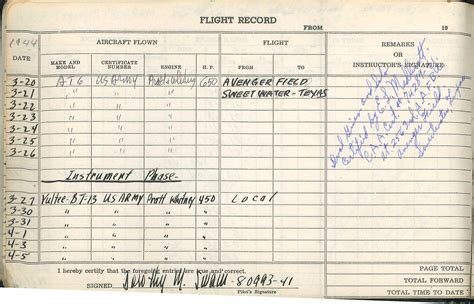 FLIGHT RECORD
FROM 19
1944 AIRCRAFT FLOWN FLIGHT REMARKS OR INSTRUCTOR'S SIGNATURE
DATE MAKE AND MODEL CERTIFICATE NUMBER ENGINE H. P. FROM
3-20 AT6 US ARMY 650 AVENGER FIELD
3-21 " " " SWEETWATER - TEXAS
3-22 " " "
3-24 " " "
3-25 " " "
3-26 " " "
Instrument Phase-
3-27 Vultee-BT-13 US ARMY Pratt Whitney 450 Local
3-30 " " " "
3-31 " " " "
4-1 " " " "
4-4 " " " "
4-5 " " " "
Dual Hours and
Certified by
C.A.A. Cert.
at 2563rd A.A.F.
Avenger Field
Sweetwater, Texas
I hereby certify that the foregoing entries are true and correct.
SIGNED Dorothy M. Swain - 80993-41
Pilot's Signature
PAGE TOTAL
TOTAL FORWARD
TOTAL TIME TO DATE